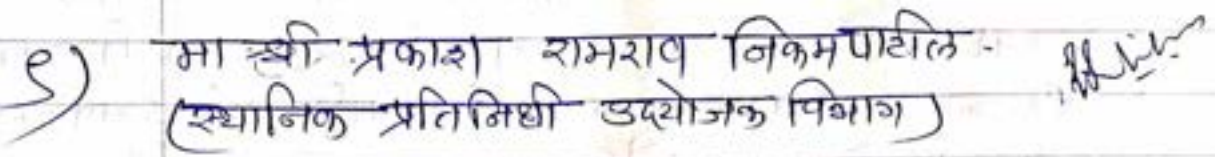 ९) मा श्री. प्रकाश रामराव निकमपाटील -
(स्थानिक प्रतिनिधी उदयोजक विभाग)